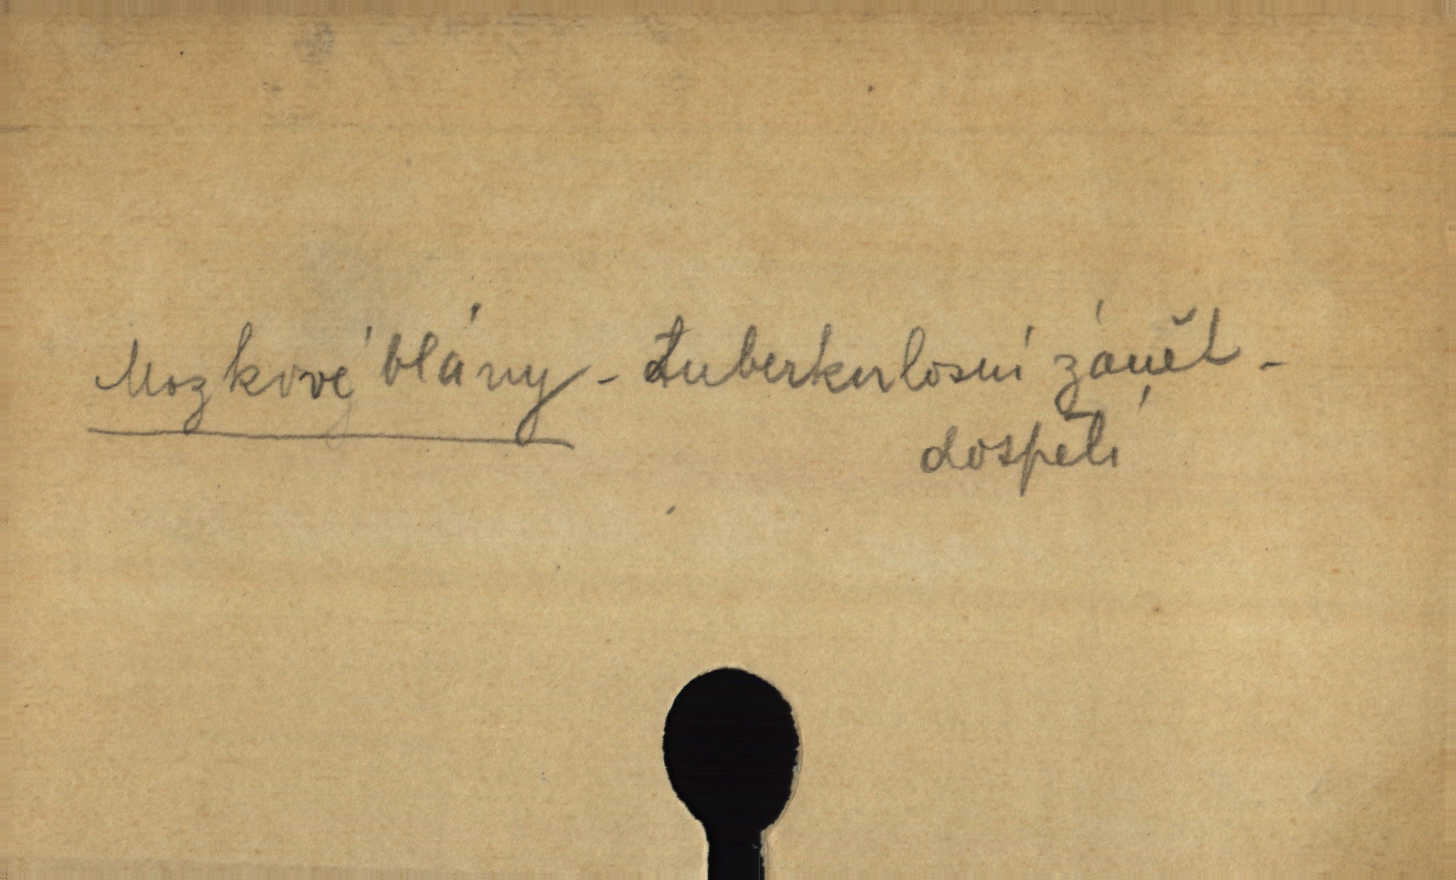 Mozkové blány - tuberkulosní zánět -
dospělí